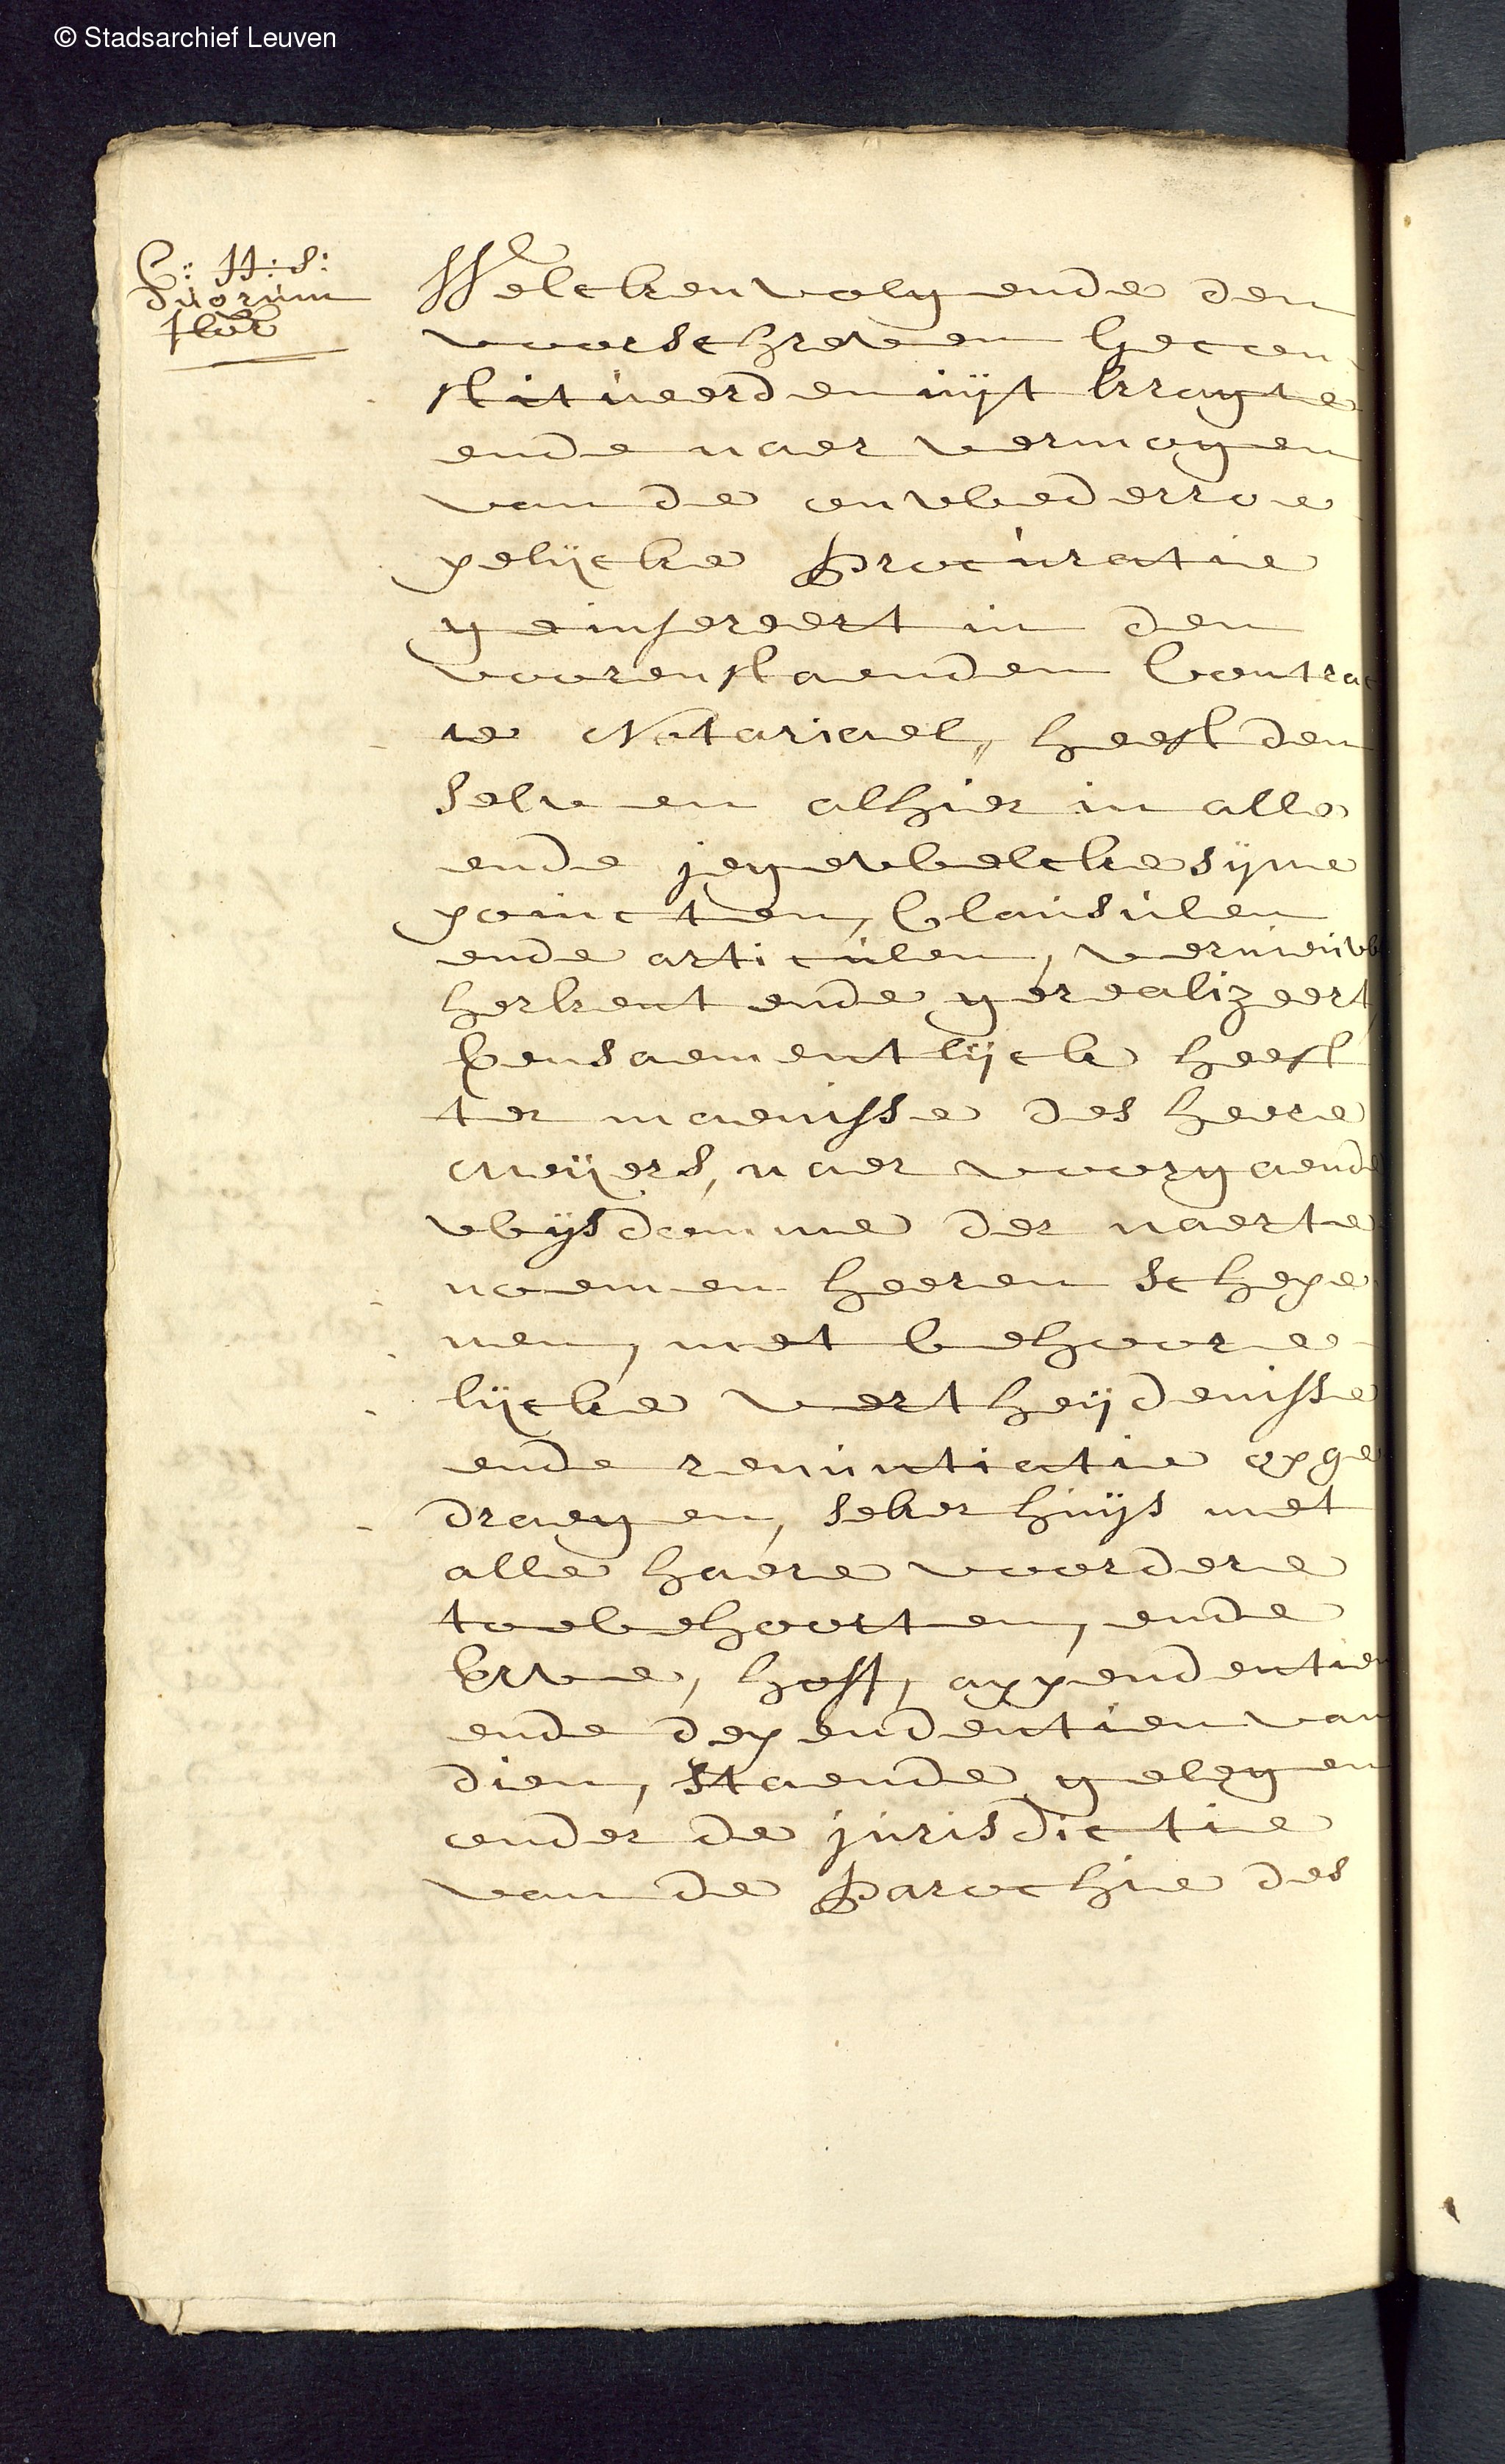 © Stadsarchief Leuven
C: H: S:
duorum
flor
Welckenvolgende den
voorschreven Gecon
stitueerden uijt kragte
ende naer vermogen
van de onwederroe
pelijcke Procuratie
geinsereert in den
voorenstaenden Contrac
te Notariael, heeft den
selven alhier in alle
ende jegewelcke sijne
poincten, Clausulen
ende articulen, vernieuw
herkent ende gerealizeert
Consaementlijck heeft
ter maenisse des heere
meijers, naer voorgaende
wijsdomme der naerte
noemen heeren schepe
nen, met behoore
lijcke vertheijdenisse
ende renuntiatie opge
draegen, seker huijs met
alle haere voordere
toebehoorten, ende
Erve, hoff, appendentien
ende dependentien van
dien, staende gelegen
onder de jurisdictie
van de Parochie des